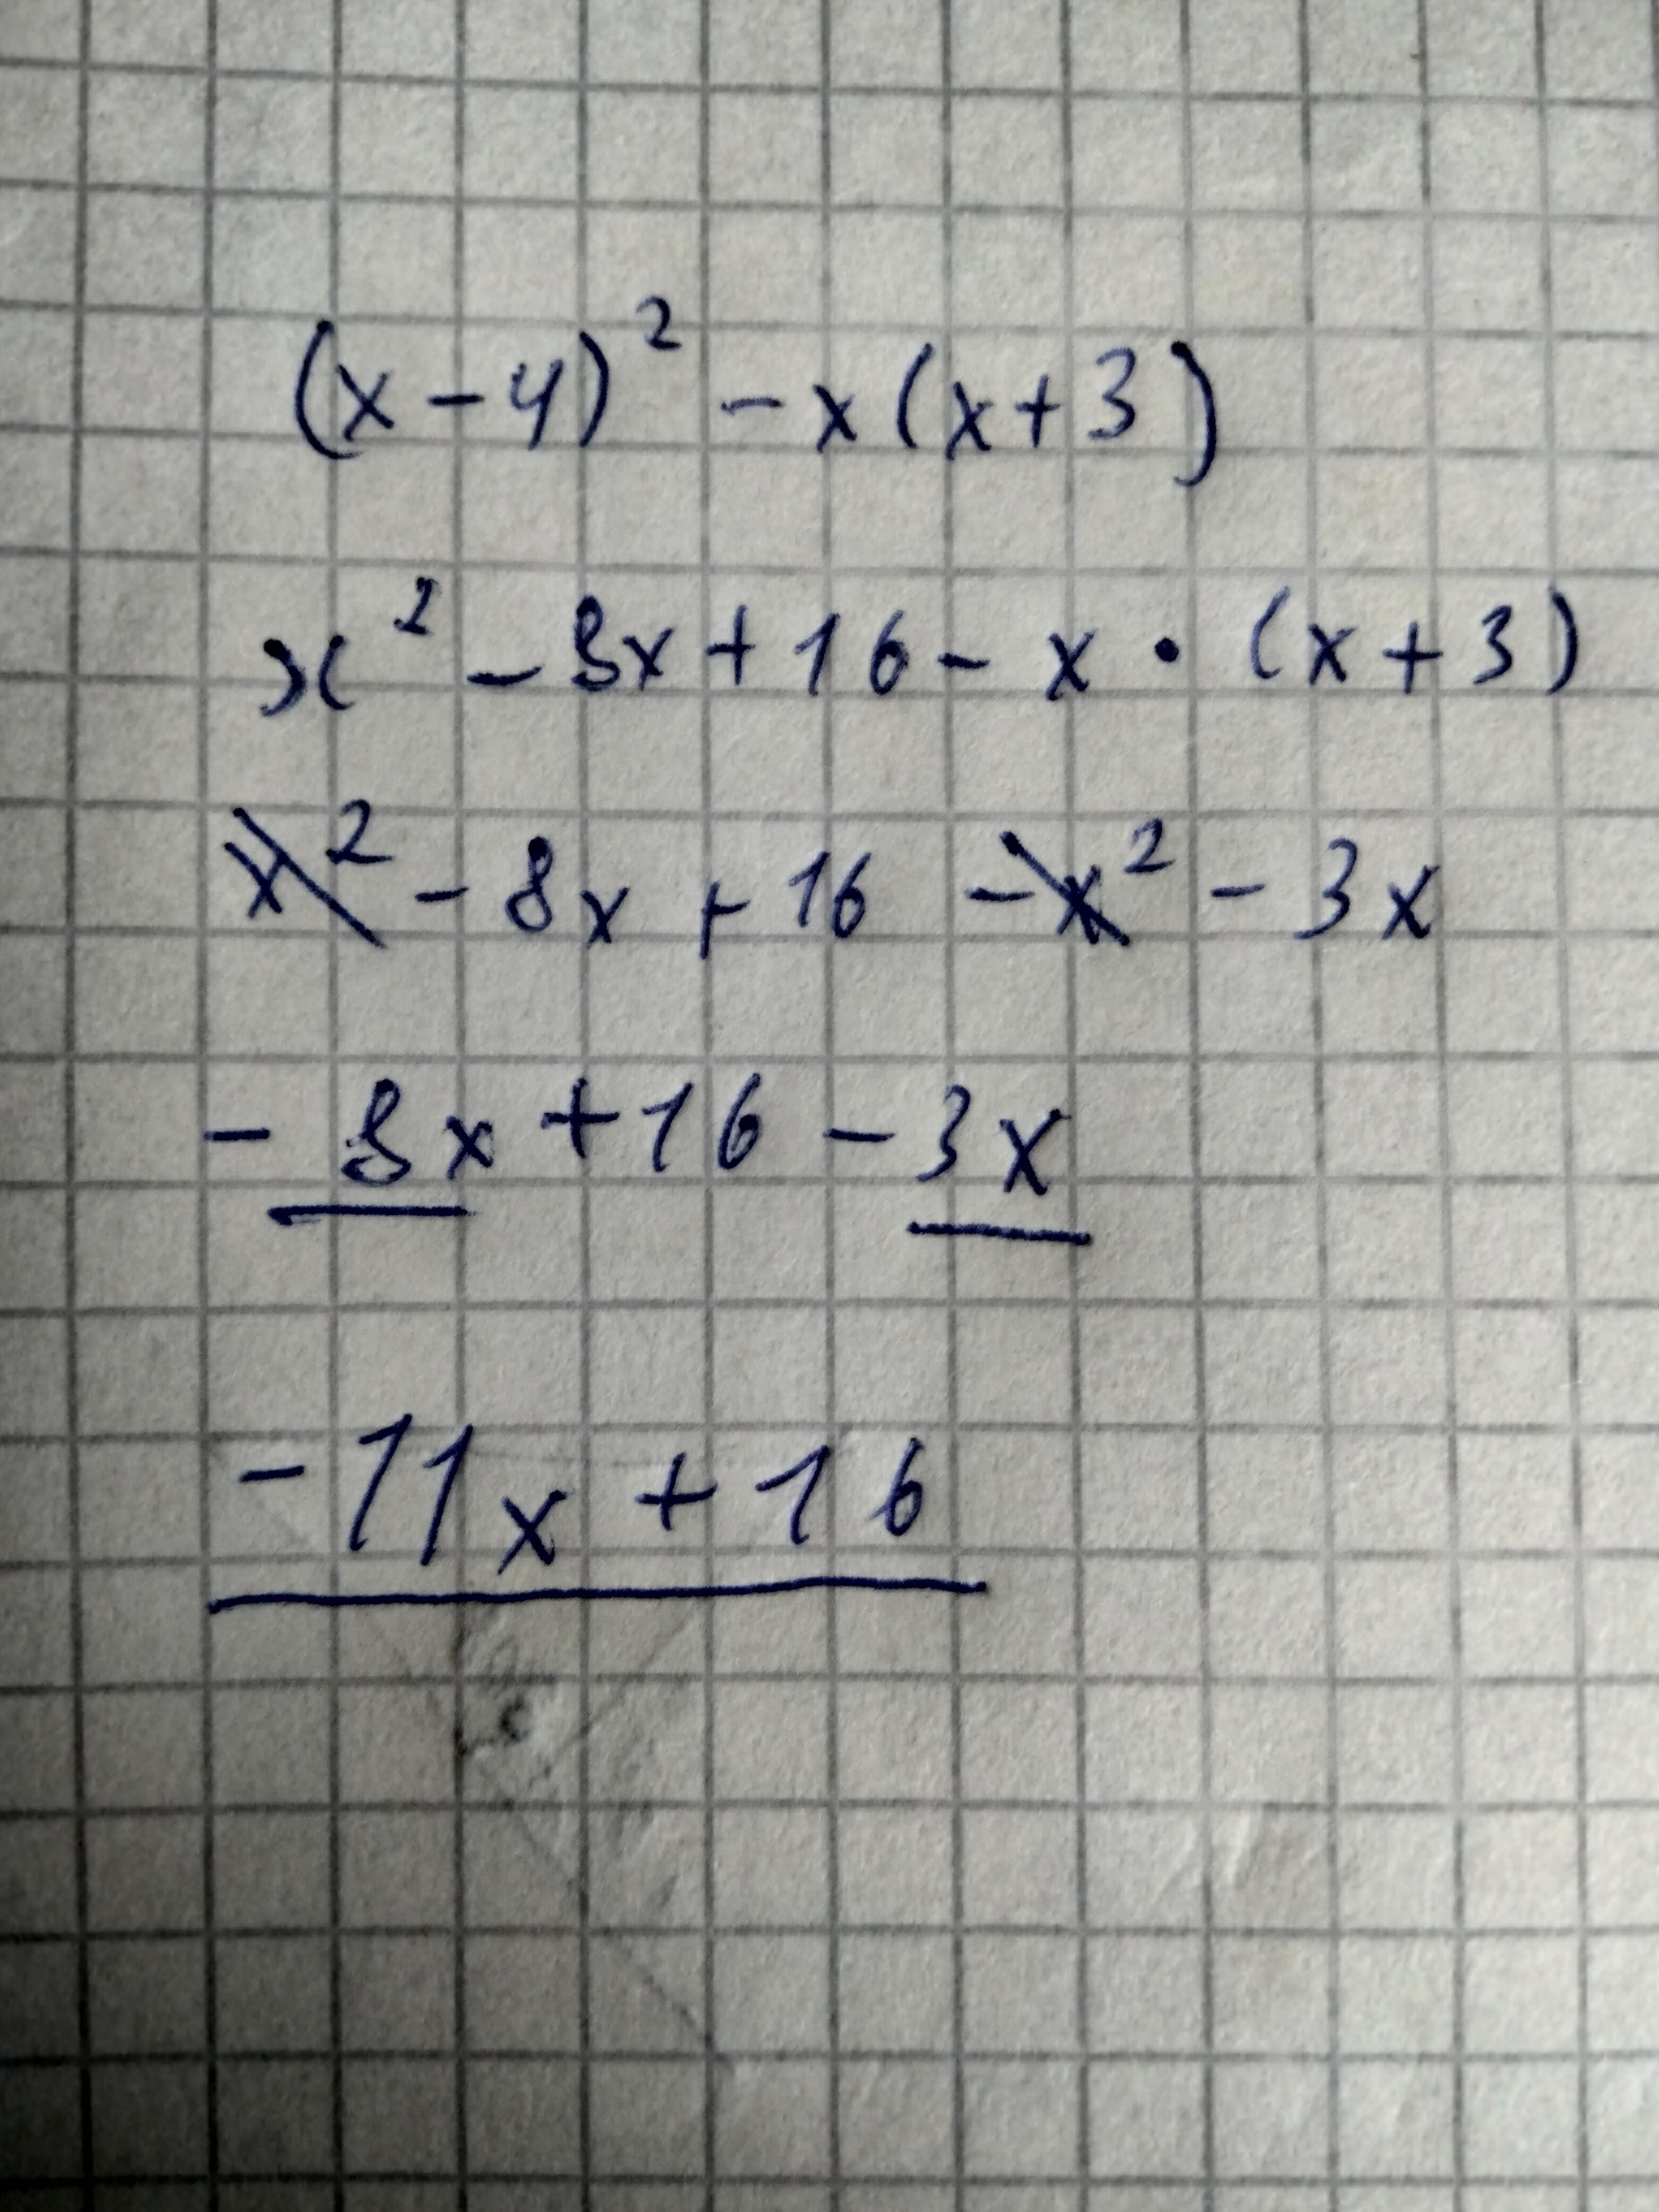 (x-4)² - x(x+3)
x² - 8x + 16 - x • (x+3)
x² - 8x + 16 - x² - 3x
- 8x + 16 - 3x
- 11x + 16